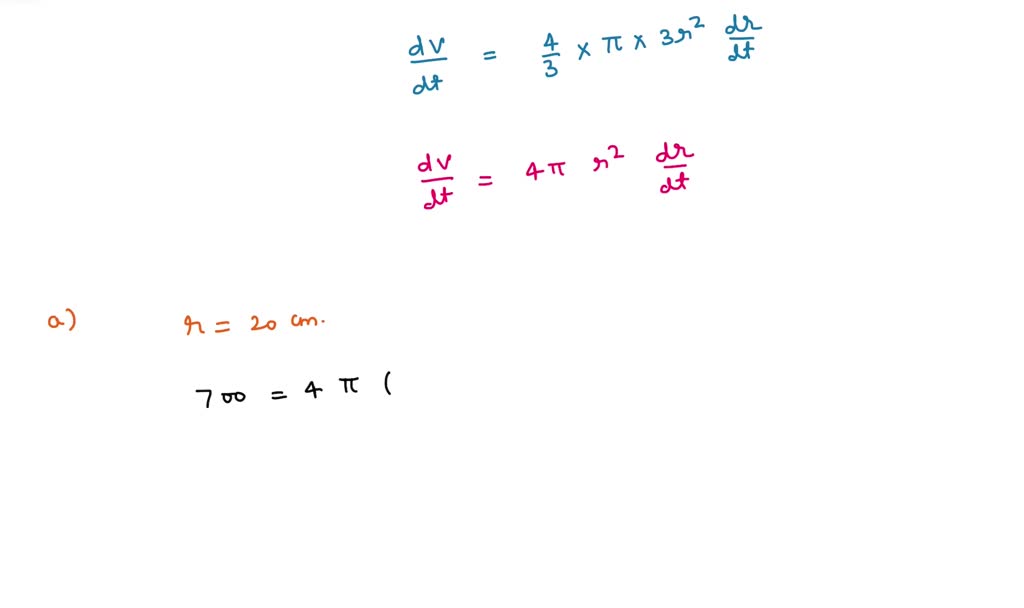 dv/dt = 4/3 × π × 3r² dr/dt
dv/dt = 4π r² dr/dt
a) r = 20 cm.
700 = 4 π (